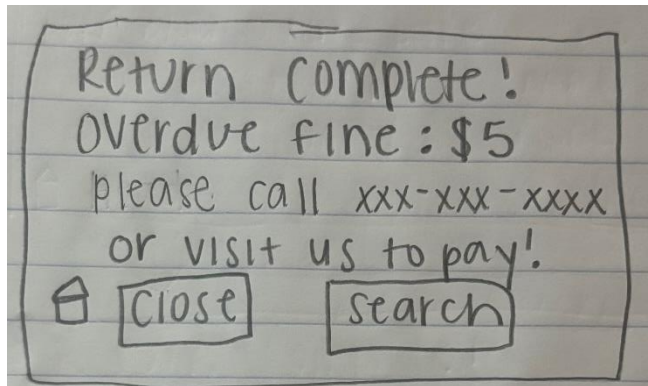 Return complete!
Overdue fine: $5
please call xxx-xxx-xxxx
or visit us to pay!
close search